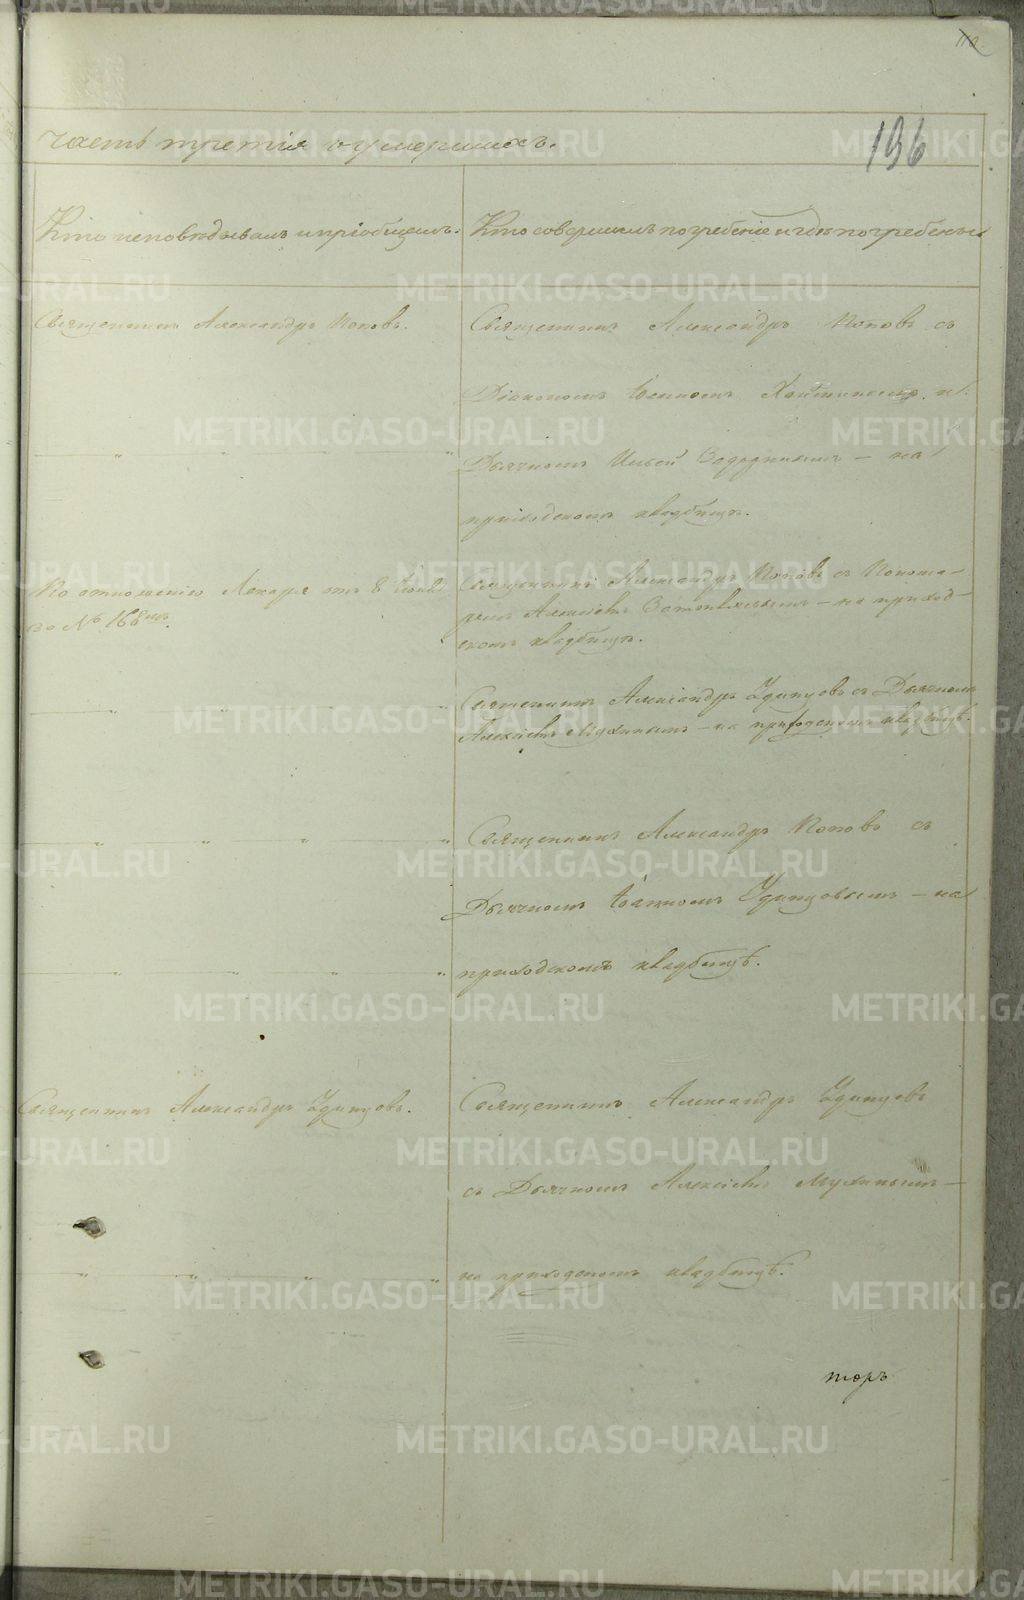 110.
136
Часть третія о умершихъ.
Кто исповѣдывалъ и пріобщалъ.
Кто совершилъ погребеніе и гдѣ погребены
Священникъ Александръ Поповъ.
Священникъ Александръ Поповъ съ
Діакономъ и
Дьячкомъ Ильей — на
приходскомъ кладбищѣ.
По отношенію Лекаря отъ 8
за № 168мъ
Священникъ Александръ Поповъ съ Понома-
ремъ Алексѣемъ — на приход-
скомъ кладбищѣ.
Священникъ Александръ Удинцовъ съ Дьячкомъ
Алексѣемъ Мухинымъ — на приходскомъ кладбищѣ.
Священникъ Александръ Поповъ съ
Дьячкомъ Іоанномъ Удинцовымъ — на
приходскомъ кладбищѣ.
Священникъ Александръ Удинцовъ.
Священникъ Александръ Удинцовъ
съ Дьячкомъ Алексѣемъ Мухинымъ —
на приходскомъ кладбищѣ.
торъ
METRIKI.GASO-URAL.RU